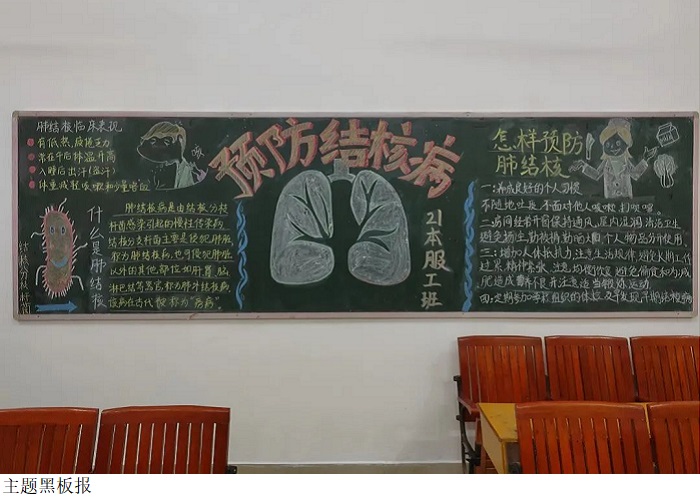 肺结核临床表现
有低热,疲倦乏力
常在午后体温升高
入睡后出汗(盗汗)
体重减轻咳嗽和少量咯血
咳
结核分枝杆菌
什么是肺结核
肺结核病是由结核分枝
杆菌感染引起的慢性传染病
结核分支杆菌主要是侵犯肺脏,
称为肺结核病,也可侵犯肺脏
以外的其他部位如肝、肾、脑
淋巴结等器官,称为肺外结核病
该病在古代便称为"痨病"
预防结核病
21本服工班
怎样预防
肺结核
一:养成良好的个人习惯
不随地吐痰,不面对他人咳嗽、打喷嚏
二:房间经常开窗保持通风,屋内湿润清洁卫生
避免扬尘,勤被褥勤晒太阳,个人物品分开使用
三:增加人体抵抗力,注意生活规律,避免长期工作
过累,精神紧张,注意均衡饮食,避免偏食和为减
肥造成营养不良并注意适当锻炼运动.
四:定期参加学校组织的体检及早发现早期结核病
主题黑板报